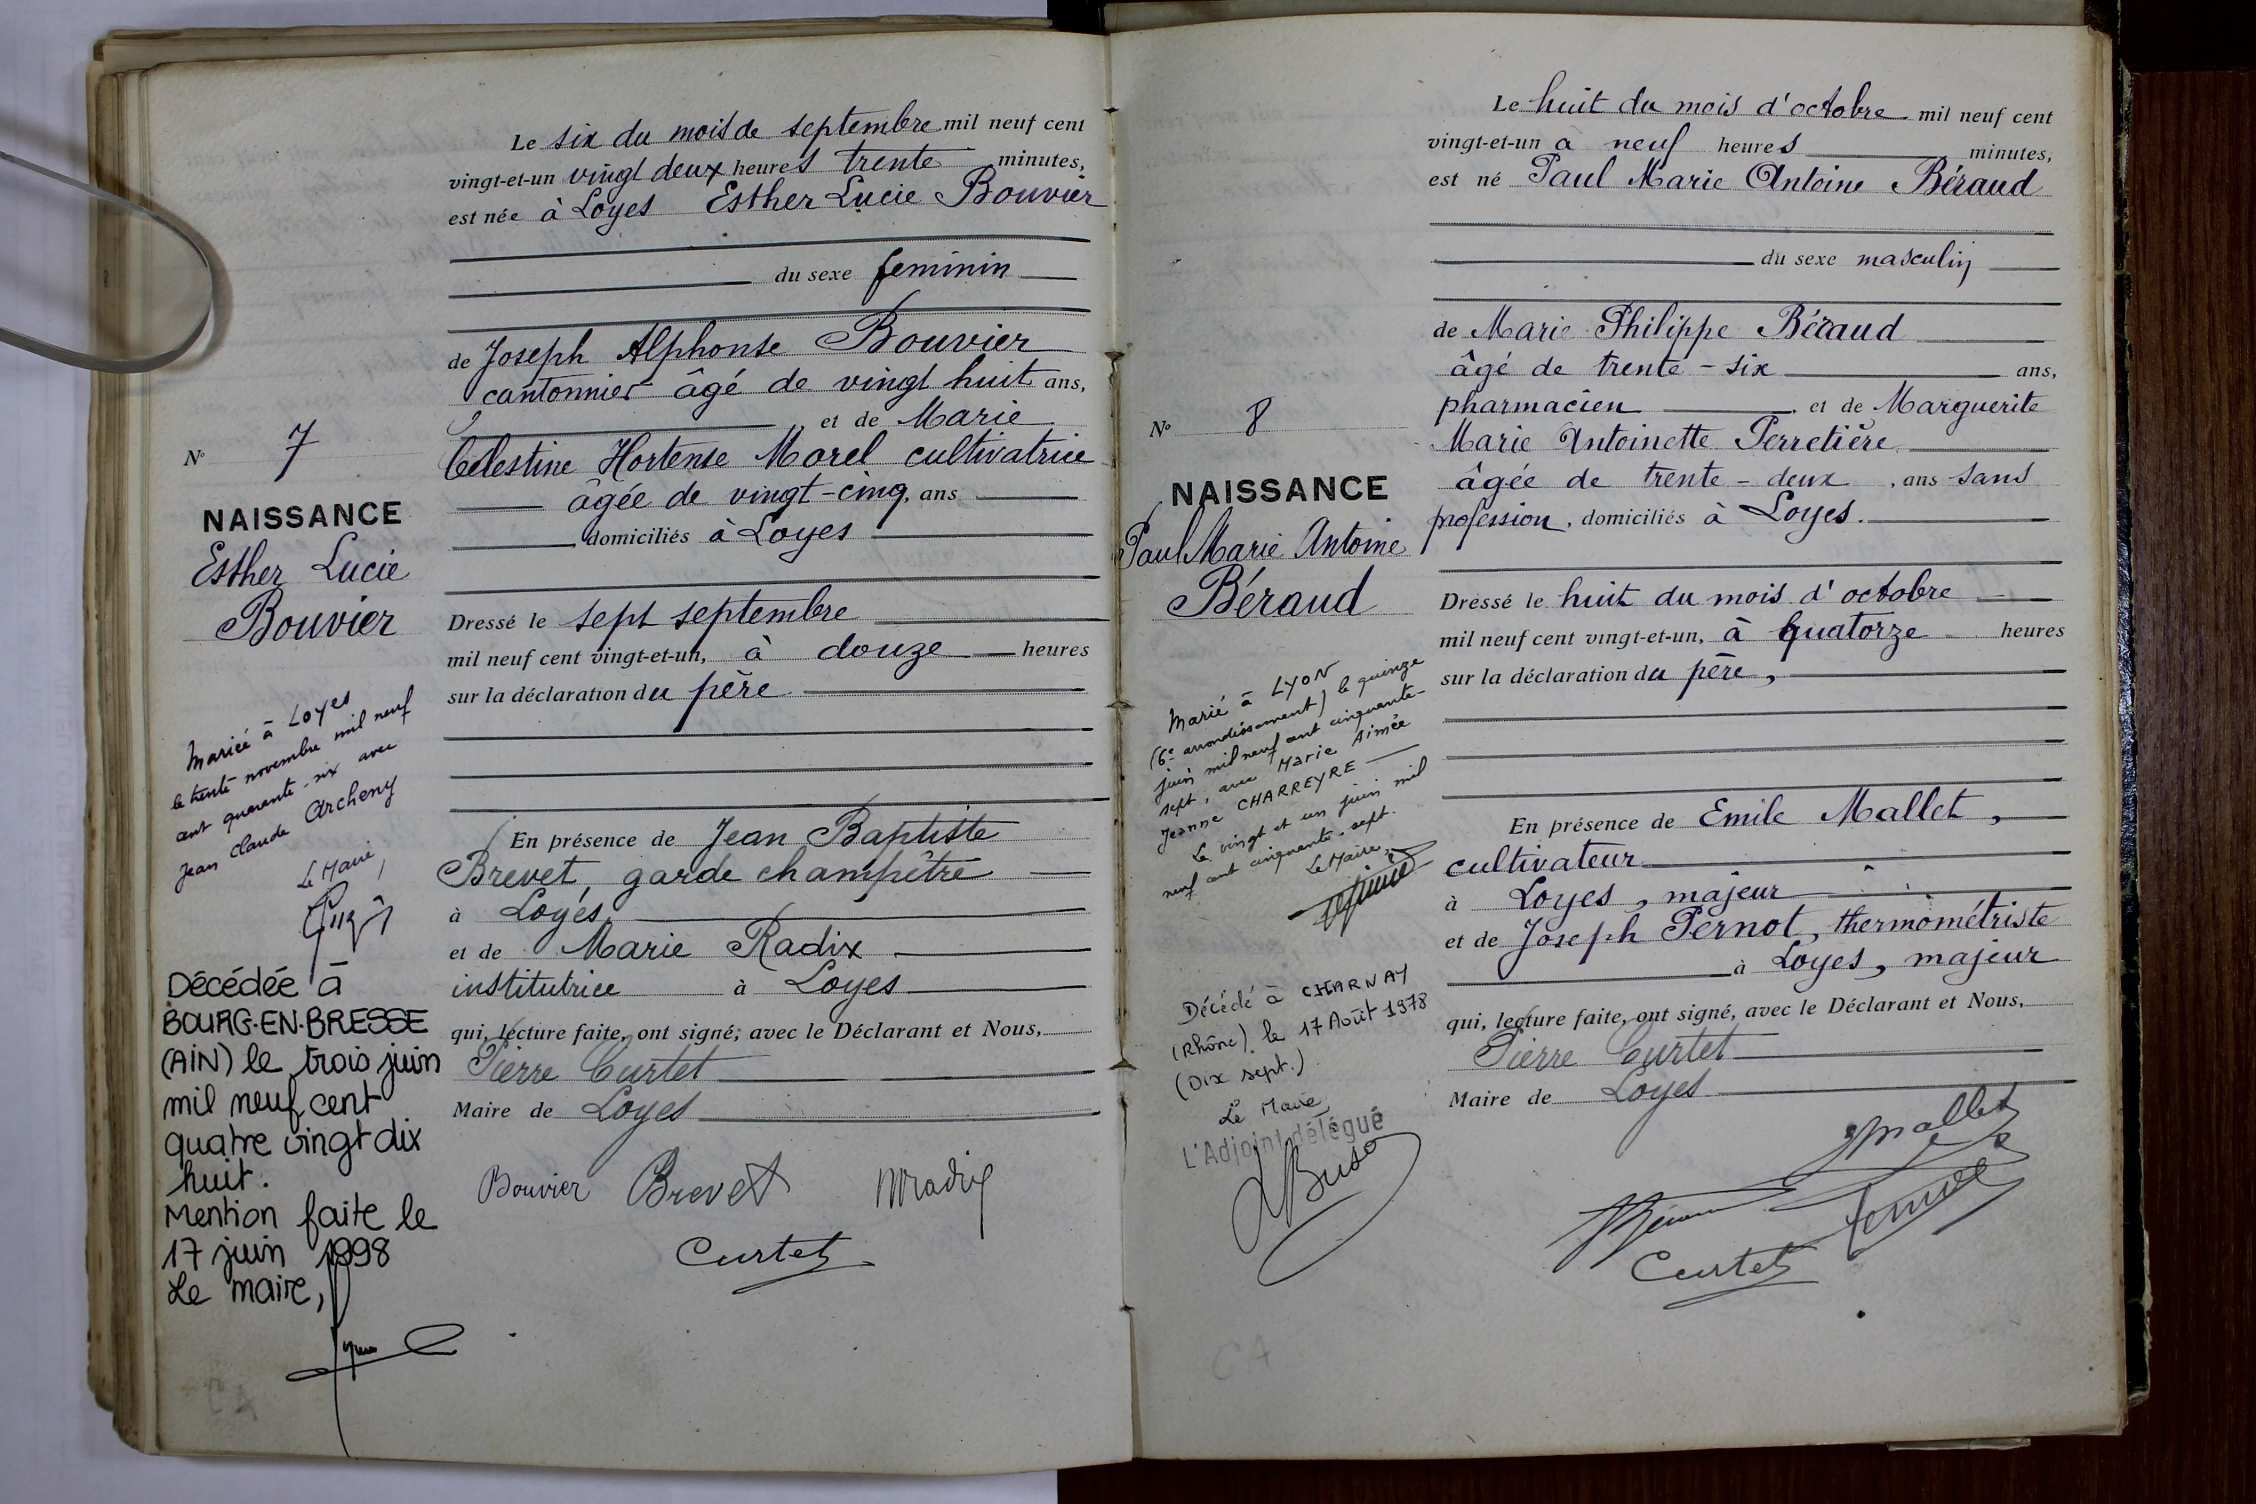 Le six du mois de septembre mil neuf cent
vingt-et-un vingt deux heures trente minutes,
est née à Loyes Esther Lucie Bouvier
du sexe feminin
de Joseph Alphonse Bouvier
cantonnier âgé de vingt huit ans,
et de Marie
Célestine Hortense Morel cultivatrice
âgée de vingt-cinq, ans
domiciliés à Loyes
Dressé le sept septembre
mil neuf cent vingt-et-un, à douze heures
sur la déclaration du père
En présence de Jean Baptiste
Brevet, garde champêtre
à Loyes
et de Marie Radix
institutrice à Loyes
qui, lecture faite, ont signé; avec le Déclarant et Nous,
Pierre Curtet
Maire de Loyes
Bouvier Brevet MRadix
Curtet
N° 7
NAISSANCE
Esther Lucie
Bouvier
Mariée à Loyes
le trente novembre mil neuf
cent quarante-six avec
Jean Claude Archeny
Le Maire,
Décédée à
BOURG-EN-BRESSE
(AIN) le trois juin
mil neuf cent
quatre vingt dix
huit.
Mention faite le
17 juin 1998
Le maire,
Le huit du mois d'octobre mil neuf cent
vingt-et-un à neuf heures minutes,
est né Paul Marie Antoine Béraud
du sexe masculin
de Marie Philippe Béraud
âgé de trente-six ans,
pharmacien, et de Marguerite
Marie Antoinette Perretière
âgée de trente-deux, ans sans
profession, domiciliés à Loyes.
Dressé le huit du mois d'octobre
mil neuf cent vingt-et-un, à quatorze heures
sur la déclaration du père,
En présence de Emile Mallet,
cultivateur
à Loyes, majeur
et de Joseph Pernot, thermométriste
à Loyes, majeur
qui, lecture faite, ont signé, avec le Déclarant et Nous,
Pierre Curtet
Maire de Loyes
Mallet
Curtet
N° 8
NAISSANCE
Paul Marie Antoine
Béraud
Marié à LYON
(6e arrondissement) le quinze
juin mil neuf cent cinquante-
sept, avec Marie Aimée
Jeanne CHARREYRE
Le vingt et un juin mil
neuf cent cinquante-sept.
Le Maire,
Décédé à CHARNAY
(Rhône) le 17 Août 1978
(Dix sept.)
Le Maire
L'Adjoint délégué